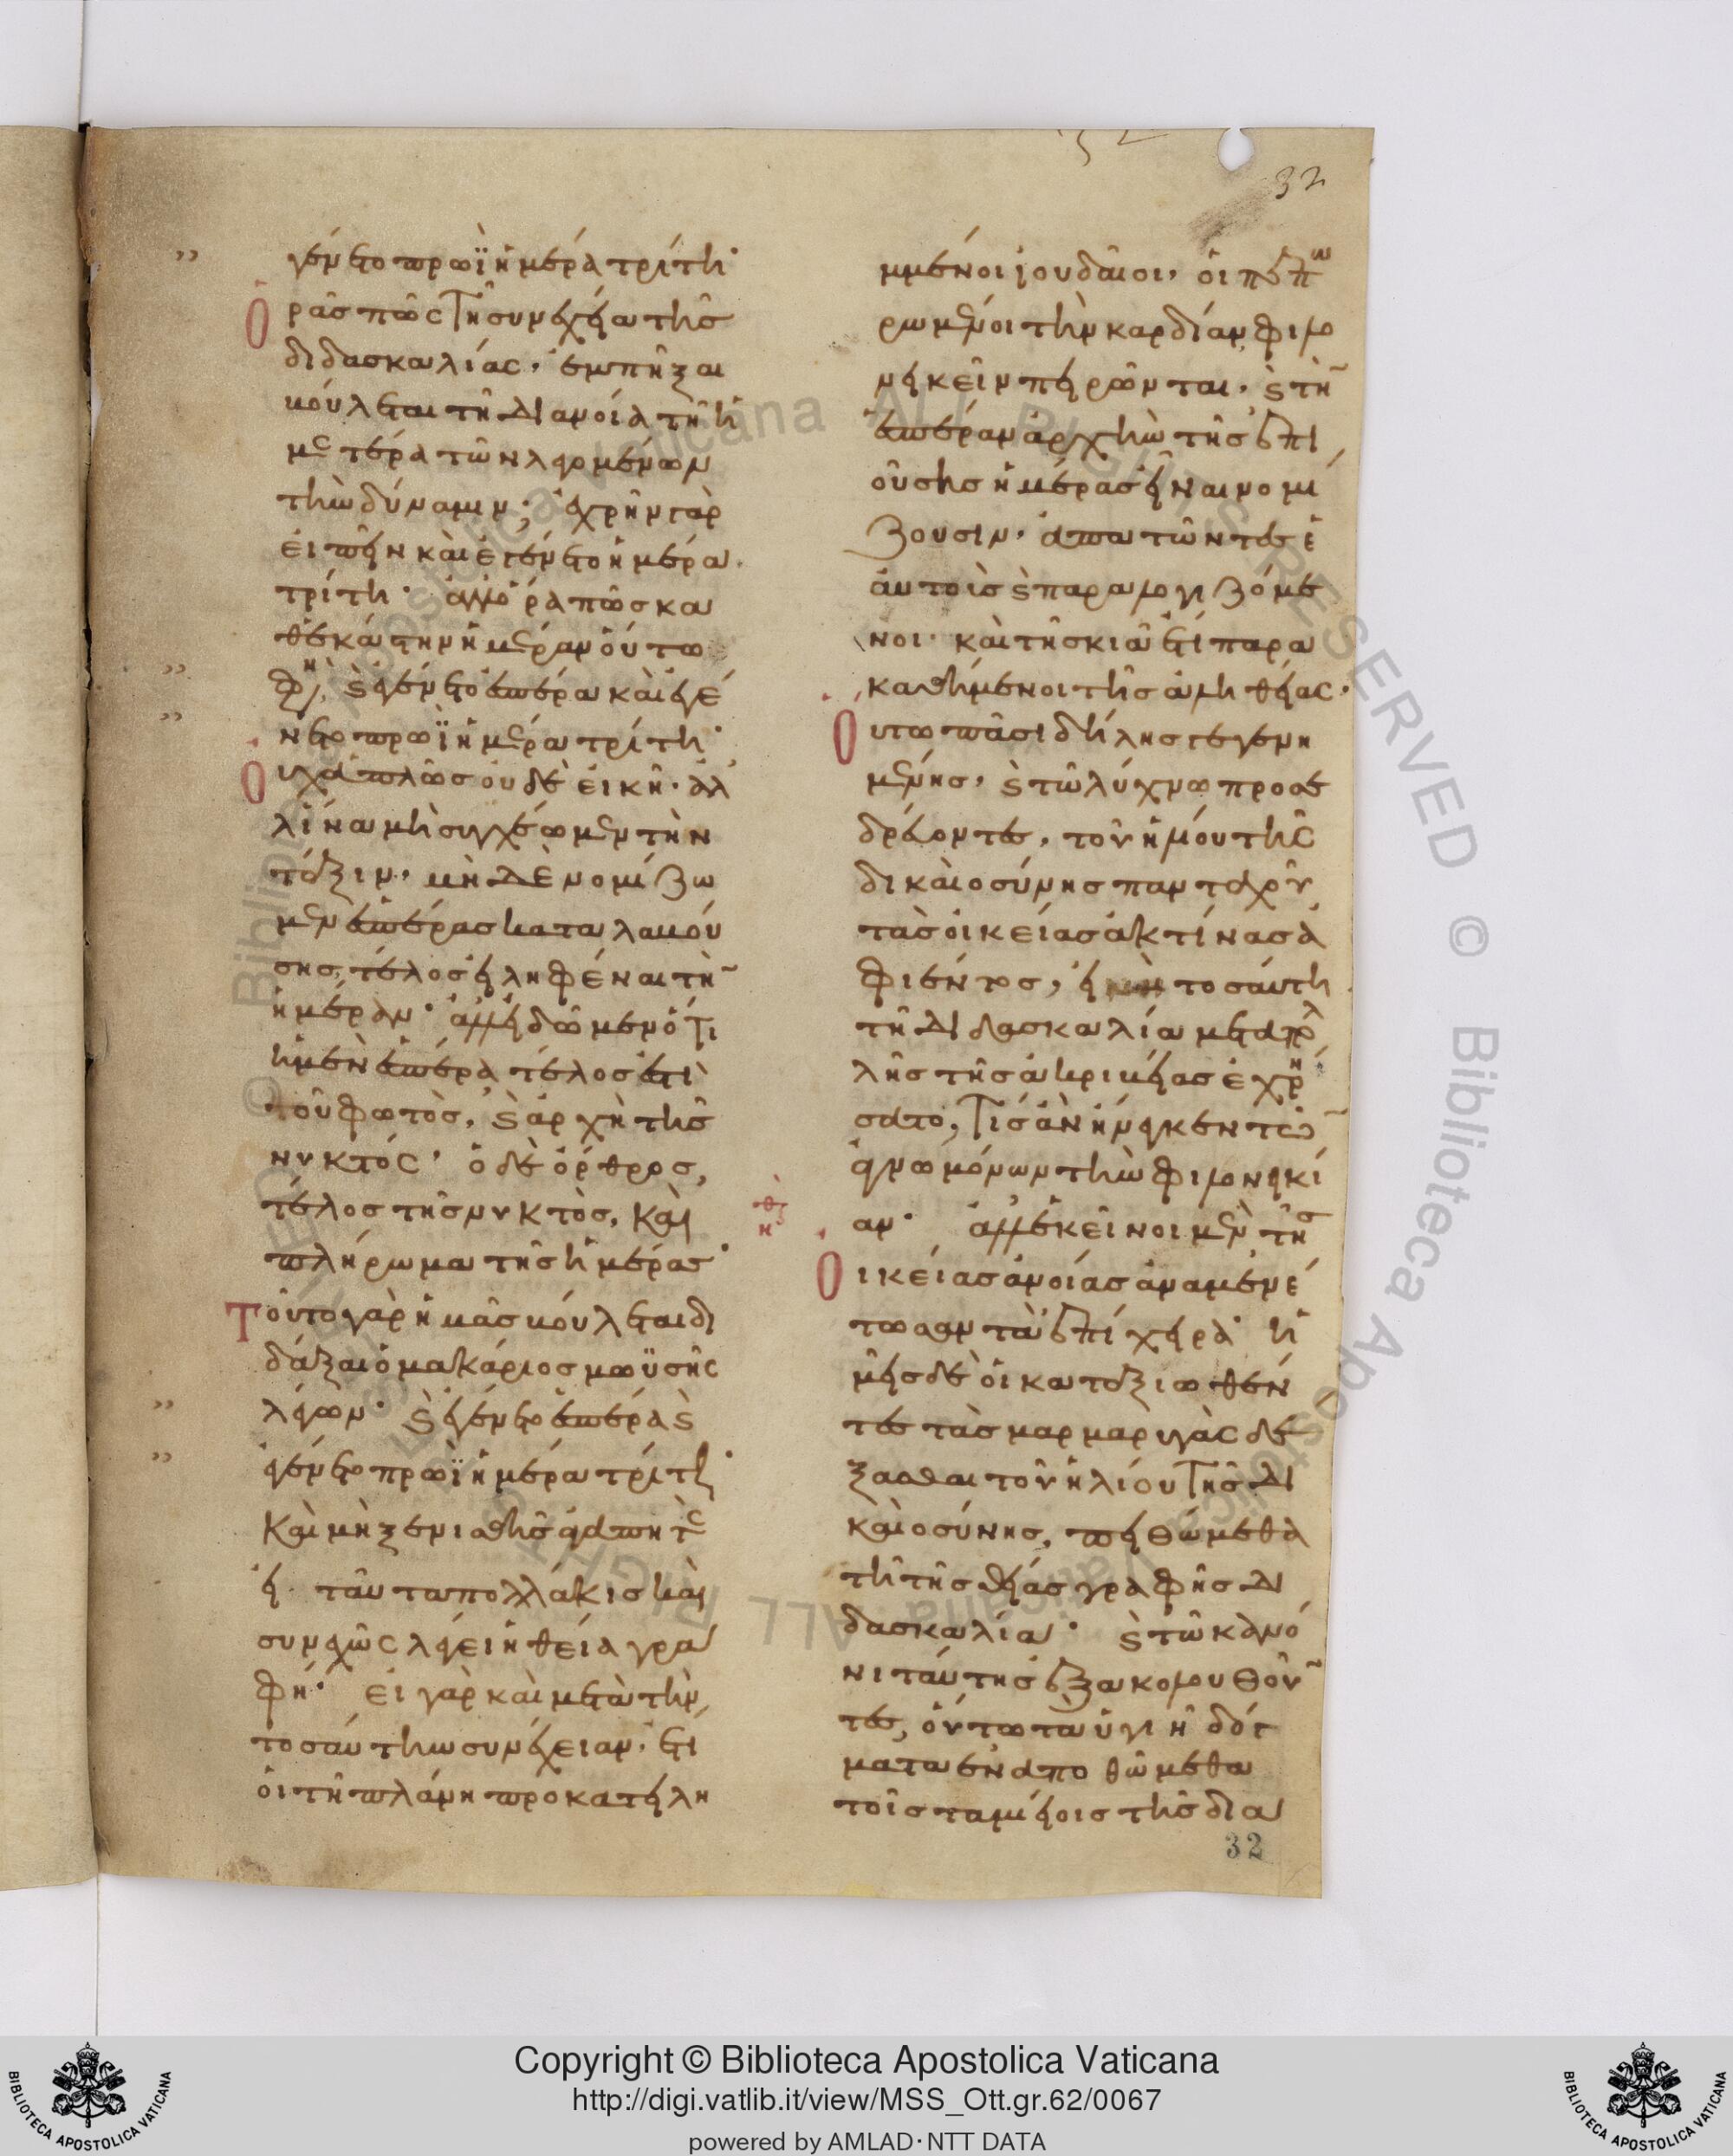 32
γένετο πρωῒ ἡμέρα τρίτη·
Ὁρᾷς πῶς τῇ συνεχείᾳ τῆς
διδασκαλίας, ἐμπῆξαι
βούλεται τῇ διανοίᾳ τῇ ἡ
μετέρᾳ τῶν λεγομένων
τὴν δύναμιν; ἐχρῆν γὰρ
εἰπεῖν καὶ ἐγένετο ἡμέρα
τρίτη· ἀλλ' ὅρα πῶς κα
θ' ἑκάστην ἡμέραν οὕτω
φη, καὶ ἐγένετο ἑσπέρα καὶ ἐγέ
νετο πρωῒ ἡμέρα τρίτη·
Οὐχ ἁπλῶς οὐδὲ εἰκῆ· ἀλ
λ' ἵνα μὴ συγχέωμεν τὴν
τάξιν, μηδὲ νομίζω
μεν ἑσπέρας καταλαβού
σης, τέλος εἰληφέναι τὴν
ἡμέραν· ἀλλ' εἰδῶμεν ὅτι
ἡ μὲν ἑσπέρα τέλος ἐστὶ
τοῦ φωτὸς, καὶ ἀρχὴ τῆς
νυκτός· ὁ δὲ ὄρθρος,
τέλος τῆς νυκτὸς, καὶ
πλήρωμα τῆς ἡμέρας·
Τοῦτο γὰρ ἡμᾶς βούλεται δι
δάξαι ὁ μακάριος μωϋσῆς
λέγων· καὶ ἐγένετο ἑσπέρα καὶ
ἐγένετο πρωῒ ἡμέρα τρίτη
Καὶ μὴ ξενισθῇς ἀγαπητὲ
εἰ ταῦτα πολλάκις καὶ
συνεχῶς λέγει ἡ θεία γρα
φή· εἰ γὰρ καὶ μετὰ τὴν
τοσαύτην συνέχειαν, ἔτι
οἱ τῇ πλάνῃ προκατειλη
μμένοι ἰουδαῖοι, οἱ πεπω
ρωμένοι τὴν καρδίαν, φιλο
νεικεῖν πειρῶνται, καὶ τὴν
ἑσπέραν ἀρχὴν τῆς ἐπι
ούσης ἡμέρας εἶναι νομί
ζουσιν, ἀπατῶντες ἑ
αυτοῖς καὶ παραλογιζόμε
νοι· καὶ τῇ σκιᾷ ἔτι παρα
καθήμενοι τῆς ἀληθείας·
Οὕτω πᾶσι δήλης γεγενη
μένης, καὶ τῷ λύχνῳ προσε
δρεύοντες, τοῦ ἡλίου τῆς
δικαιοσύνης πανταχοῦ
τὰς οἰκείας ἀκτίνας ἀ
φιέντος, εἰ μὴ τοσαύτῃ
τῇ διδασκαλίᾳ μετὰ πολ
λῆς τῆς ἀκριβείας ἐχρή
σατο, τίς ἂν ἤνεγκεν τῶν
ἀγνωμόνων τὴν φιλονεικί
αν· ἀλλ' ἐκεῖνοι μὲν τῆς
Οἰκείας ἀνοίας ἀναμενέ
τωσαν τὰ ἐπίχειρα· ἡ
μεῖς δὲ οἱ καταξιωθέν
τες τὰς μαρμαρυγὰς δέ
ξασθαι τοῦ ἡλίου τῆς δι
καιοσύνης, πειθώμεθα
τῇ τῆς θείας γραφῆς δι
δασκαλίᾳ· καὶ τῷ κανό
νι ταύτης ἐξακολουθοῦν
τες, οὕτω τὰ ὑγιῆ δόγ
ματα ἐναποθώμεθα
τοῖς ταμιείοις τῆς δια
32
Copyright © Biblioteca Apostolica Vaticana
http://digi.vatlib.it/view/MSS_Ott.gr.62/0067
powered by AMLAD·NTT DATA